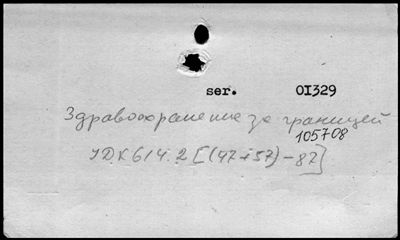 ser. OI329
Здравоохранение за границей
105708
УДК 614.2 [(47+57)-87]